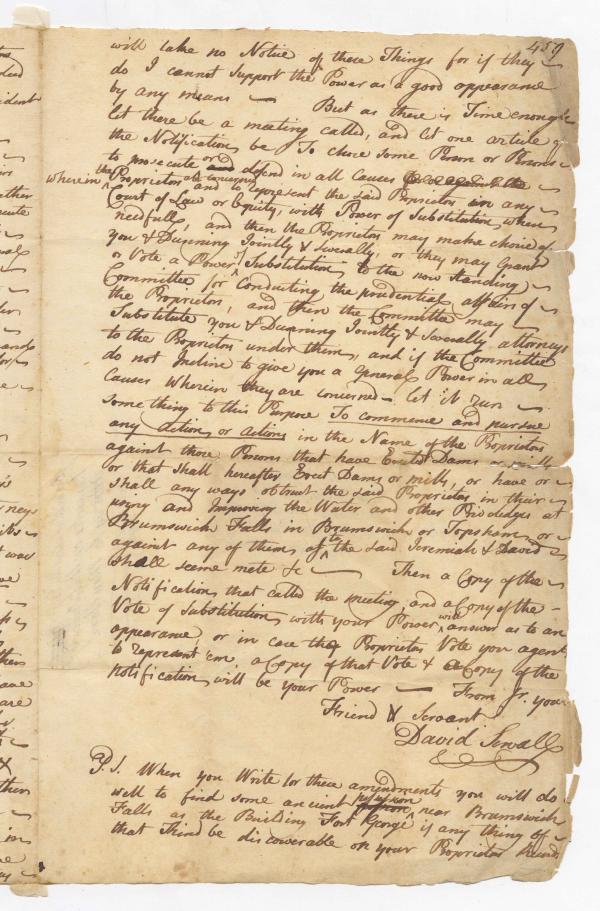 459
will take no Notice of these Things for if they
do I cannot support the Power as a good appearance
by any means — But as there is Time enough
let there be a meeting called, and let one article of
the Notification be To chuse some Person or Persons
to prosecute or and defend in all Causes
wherein the Proprietors are concerned and to represent the said Proprietors in any
Court of Law or Equity, with Power of Substitution when
needfull, and then the Proprietors may make choice of
you & Dunning Jointly & severally, or they may Grant
or Vote a Power of Substitution to the now standing
Committee for Conducting the prudential affairs of
the Proprietors, and then the Committee may
Substitute you & Dunning Jointly & severally attorneys
to the Proprietors under them, and if the Committee
do not Incline to give you a General Power in all
Causes Wherein they are concerned — let it run
some thing to this Purpose To commence and pursue
any action or actions in the Name of the Proprietors
against those Persons that have Erected Dams or mills
or that shall hereafter Erect Dams or mills, or have or
shall any ways obstruct the said Proprietors in their
using and Improving the Water and other Priviledges at
Brumswich Falls in Brumswich or Topsham, or
against any of them as to the said Jeremiah & David
shall seeme mete &c — Then a Copy of the
Notification that called the meeting, and a Copy of the
Vote of Substitution with your Power will answer as to an
appearance, or in case the Proprietors Vote you agent
to represent 'em, a Copy of that Vote & a Copy of the
Notification will be your Power — From Sr. your
Friend & Servant
David Sewall
P.S. When you Write for these amendments you will do
well to find some ancient person near Brumswich
Falls as the Building Fort George if any thing of
that Kind be discoverable on your Proprietors Records